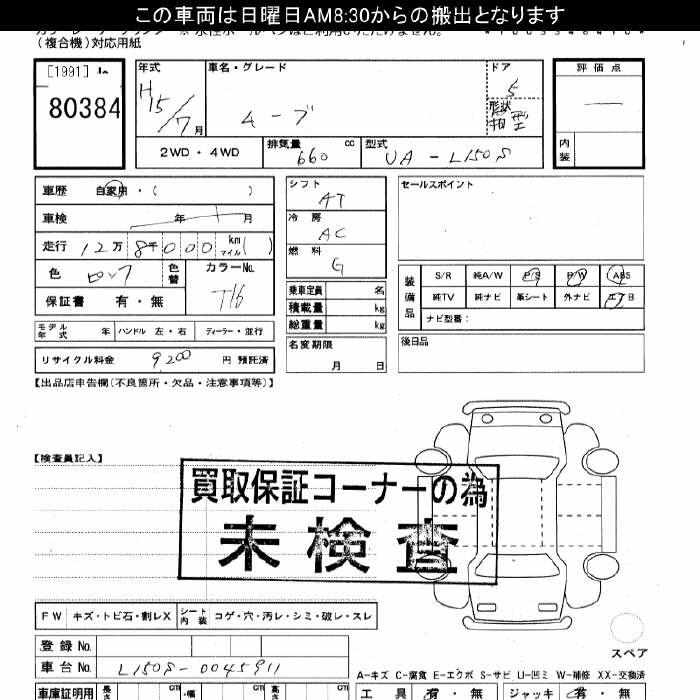 この車両は日曜日AM8:30からの搬出となります
(複合機)対応用紙
[1991]
80384
年式 H15/7月
車名・グレード ムーブ
ドア 5
形状
評価点
内装
2WD・4WD
排気量 660 cc
型式 UA-L150S
車歴 自家用・( )
車検 年 月
走行 12万8千000 km マイル( )
色 ピンク 色替
カラーNo. T16
保証書 有・無
モデル年式 年 ハンドル 左・右 ディーラー・並行
リサイクル料金 9,200 円 預託済
シフト AT
冷房 AC
燃料 G
乗車定員 名
積載量 kg
総重量 kg
名変期限 月 日
セールスポイント
装備品 S/R 純A/W P/S P/W ABS
純TV 純ナビ 革シート 外ナビ エアB
ナビ型番:
後日品
【出品店申告欄(不良箇所・欠品・注意事項等)】
【検査員記入】
買取保証コーナーの為
未検査
FW キズ・トビ石・割レX シート内装 コゲ・穴・汚レ・シミ・破レ・スレ
スペア
登録No.
車台No. L150S-0045911
A-キズ C-腐食 E-エクボ S-サビ U-凹ミ W-補修 XX-交換済
車庫証明用 長さ cm 幅 cm 高さ cm
工具 有・無 ジャッキ 有・無